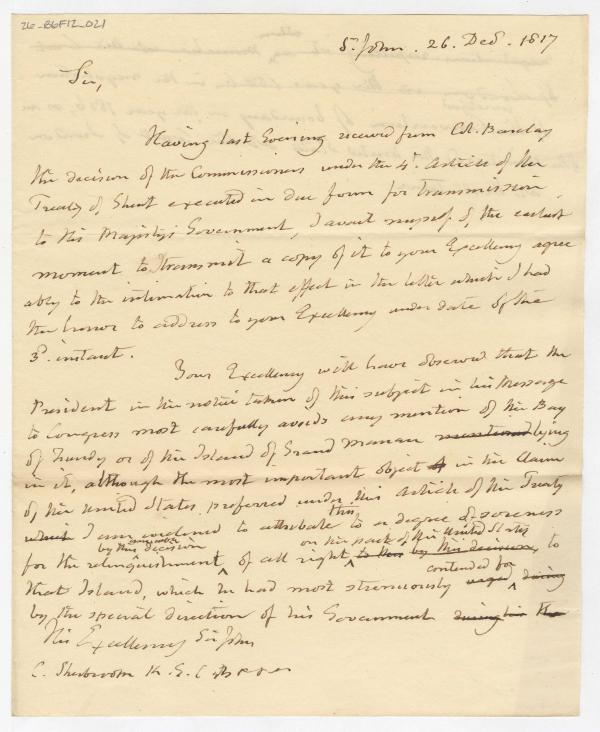 26_B6F12_021
St. John. 26. Decr. 1817
Sir,
Having last Evening received from Col. Barclay
the decision of the Commissioners under the 4th. Article of the
Treaty of Ghent executed in due form for transmission
to His Majesty's Government, I avail myself of the earliest
moment to transmit a copy of it to your Excellency agree
ably to the intimation to that effect in the letter which I had
the honor to address to your Excellency under date of the
3d. instant.
Your Excellency will have observed that the
President in the notice taken of this subject in his Message
to Congress most carefully avoids any mention of the Bay
of Fundy or of the Island of Grand Manan mentioned lying
in it, although the most important object of in the Claim
of the United States preferred under this Article of the Treaty
which I am inclined to attribute this to a degree of soreness
by this decision on the part of the United States
for the relinquishment, of all right to them by this decision, to
contended for
that Island, which he had most strenuously urged during
by the special direction of his Government during the
His Excellency Sir John
C. Sherbrooke K. G. C. B